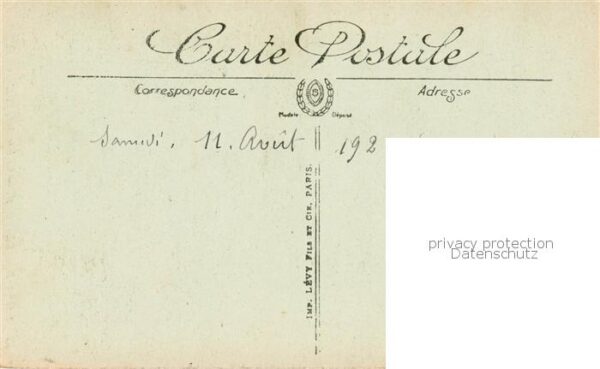 Carte Postale
Correspondance
Adresse
S
Modèle Déposé
Samedi, 11. Août 192
IMP. LÉVY FILS ET CIE, PARIS.
privacy protection
Datenschutz